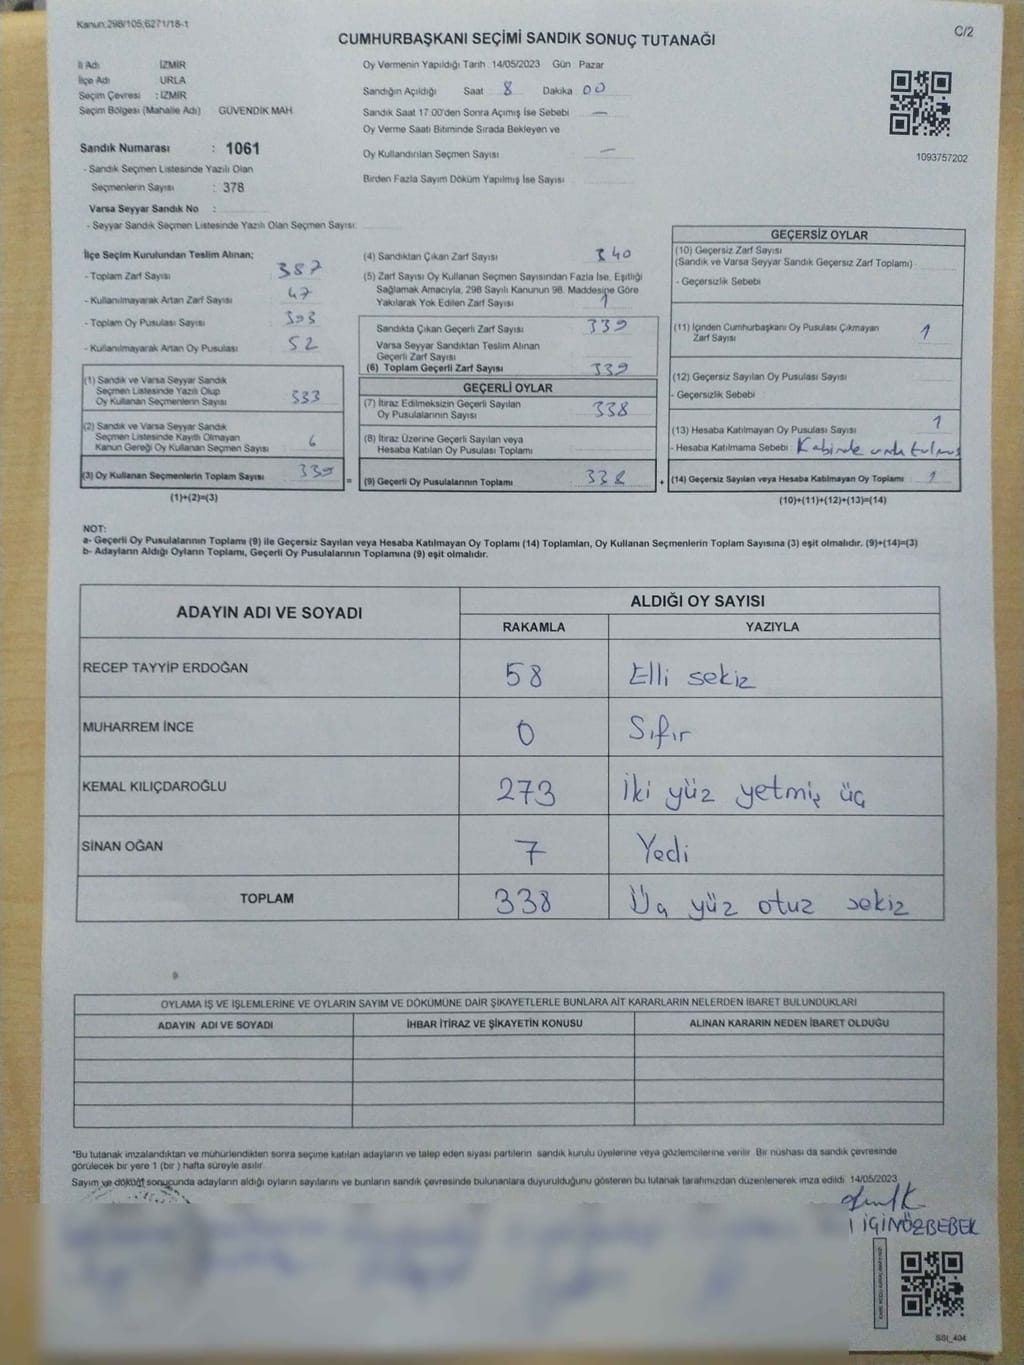 Kanun:298/105;6271/18-1
C/2
CUMHURBAŞKANI SEÇİMİ SANDIK SONUÇ TUTANAĞI
İl Adı İZMİR
İlçe Adı URLA
Seçim Çevresi : İZMİR
Seçim Bölgesi (Mahalle Adı) GÜVENDİK MAH.
Sandık Numarası : 1061
- Sandık Seçmen Listesinde Yazılı Olan
Seçmenlerin Sayısı : 378
Varsa Seyyar Sandık No :
- Seyyar Sandık Seçmen Listesinde Yazılı Olan Seçmen Sayısı:
Oy Vermenin Yapıldığı Tarih 14/05/2023 Gün Pazar
Sandığın Açıldığı Saat 8 Dakika 00
Sandık Saat 17:00'den Sonra Açımış İse Sebebi —
Oy Verme Saati Bitiminde Sırada Bekleyen ve
Oy Kullandırılan Seçmen Sayısı —
Birden Fazla Sayım Döküm Yapılmış İse Sayısı
1093757202
İlçe Seçim Kurulundan Teslim Alınan;
- Toplam Zarf Sayısı 387
- Kullanılmayarak Artan Zarf Sayısı 47
- Toplam Oy Pusulası Sayısı
- Kullanılmayarak Artan Oy Pusulası 52
(1) Sandık ve Varsa Seyyar Sandık
Seçmen Listesinde Yazılı Olup
Oy Kullanan Seçmenlerin Sayısı 333
(2) Sandık ve Varsa Seyyar Sandık
Seçmen Listesinde Kayıtlı Olmayan
Kanun Gereği Oy Kullanan Seçmen Sayısı 6
(3) Oy Kullanan Seçmenlerin Toplam Sayısı 339
(1)+(2)=(3)
(4) Sandıktan Çıkan Zarf Sayısı 340
(5) Zarf Sayısı Oy Kullanan Seçmen Sayısından Fazla İse, Eşitliği
Sağlamak Amacıyla, 298 Sayılı Kanunun 98. Maddesine Göre
Yakılarak Yok Edilen Zarf Sayısı 1
Sandıkta Çıkan Geçerli Zarf Sayısı 339
Varsa Seyyar Sandıktan Teslim Alınan
Geçerli Zarf Sayısı
(6) Toplam Geçerli Zarf Sayısı 339
GEÇERLİ OYLAR
(7) İtiraz Edilmeksizin Geçerli Sayılan
Oy Pusulalarının Sayısı 338
(8) İtiraz Üzerine Geçerli Sayılan veya
Hesaba Katılan Oy Pusulası Toplamı
= (9) Geçerli Oy Pusulalarının Toplamı 338 +
GEÇERSİZ OYLAR
(10) Geçersiz Zarf Sayısı
(Sandık ve Varsa Seyyar Sandık Geçersiz Zarf Toplamı)
- Geçersizlik Sebebi
(11) İçinden Cumhurbaşkanı Oy Pusulası Çıkmayan
Zarf Sayısı 1
(12) Geçersiz Sayılan Oy Pusulası Sayısı
- Geçersizlik Sebebi
(13) Hesaba Katılmayan Oy Pusulası Sayısı 1
- Hesaba Katılmama Sebebi Kabinde unutulmuş
(14) Geçersiz Sayılan veya Hesaba Katılmayan Oy Toplamı 1
(10)+(11)+(12)+(13)=(14)
NOT:
a- Geçerli Oy Pusulalarının Toplamı (9) ile Geçersiz Sayılan veya Hesaba Katılmayan Oy Toplamı (14) Toplamları, Oy Kullanan Seçmenlerin Toplam Sayısına (3) eşit olmalıdır. (9)+(14)=(3)
b- Adayların Aldığı Oyların Toplamı, Geçerli Oy Pusulalarının Toplamına (9) eşit olmalıdır.
ADAYIN ADI VE SOYADI ALDIĞI OY SAYISI
RAKAMLA YAZIYLA
RECEP TAYYİP ERDOĞAN 58 Elli sekiz
MUHARREM İNCE 0 Sıfır
KEMAL KILIÇDAROĞLU 273 İki yüz yetmiş üç
SİNAN OĞAN 7 Yedi
TOPLAM 338 Üç yüz otuz sekiz
OYLAMA İŞ VE İŞLEMLERİNE VE OYLARIN SAYIM VE DÖKÜMÜNE DAİR ŞİKAYETLERLE BUNLARA AİT KARARLARIN NELERDEN İBARET BULUNDUKLARI
ADAYIN ADI VE SOYADI İHBAR İTİRAZ VE ŞİKAYETİN KONUSU ALINAN KARARIN NEDEN İBARET OLDUĞU
*Bu tutanak imzalandıktan ve mühürlendikten sonra seçime katılan adayların ve talep eden siyasi partilerin sandık kurulu üyelerine veya gözlemcilerine verilir. Bir nüshası da sandık çevresinde
görülecek bir yere 1 (bir ) hafta süreyle asılır.
Sayım ve döküm sonucunda adayların aldığı oyların sayılarını ve bunların sandık çevresinde bulunanlara duyurulduğunu gösteren bu tutanak tarafımızdan düzenlenerek imza edildi. 14/05/2023
SSt_404